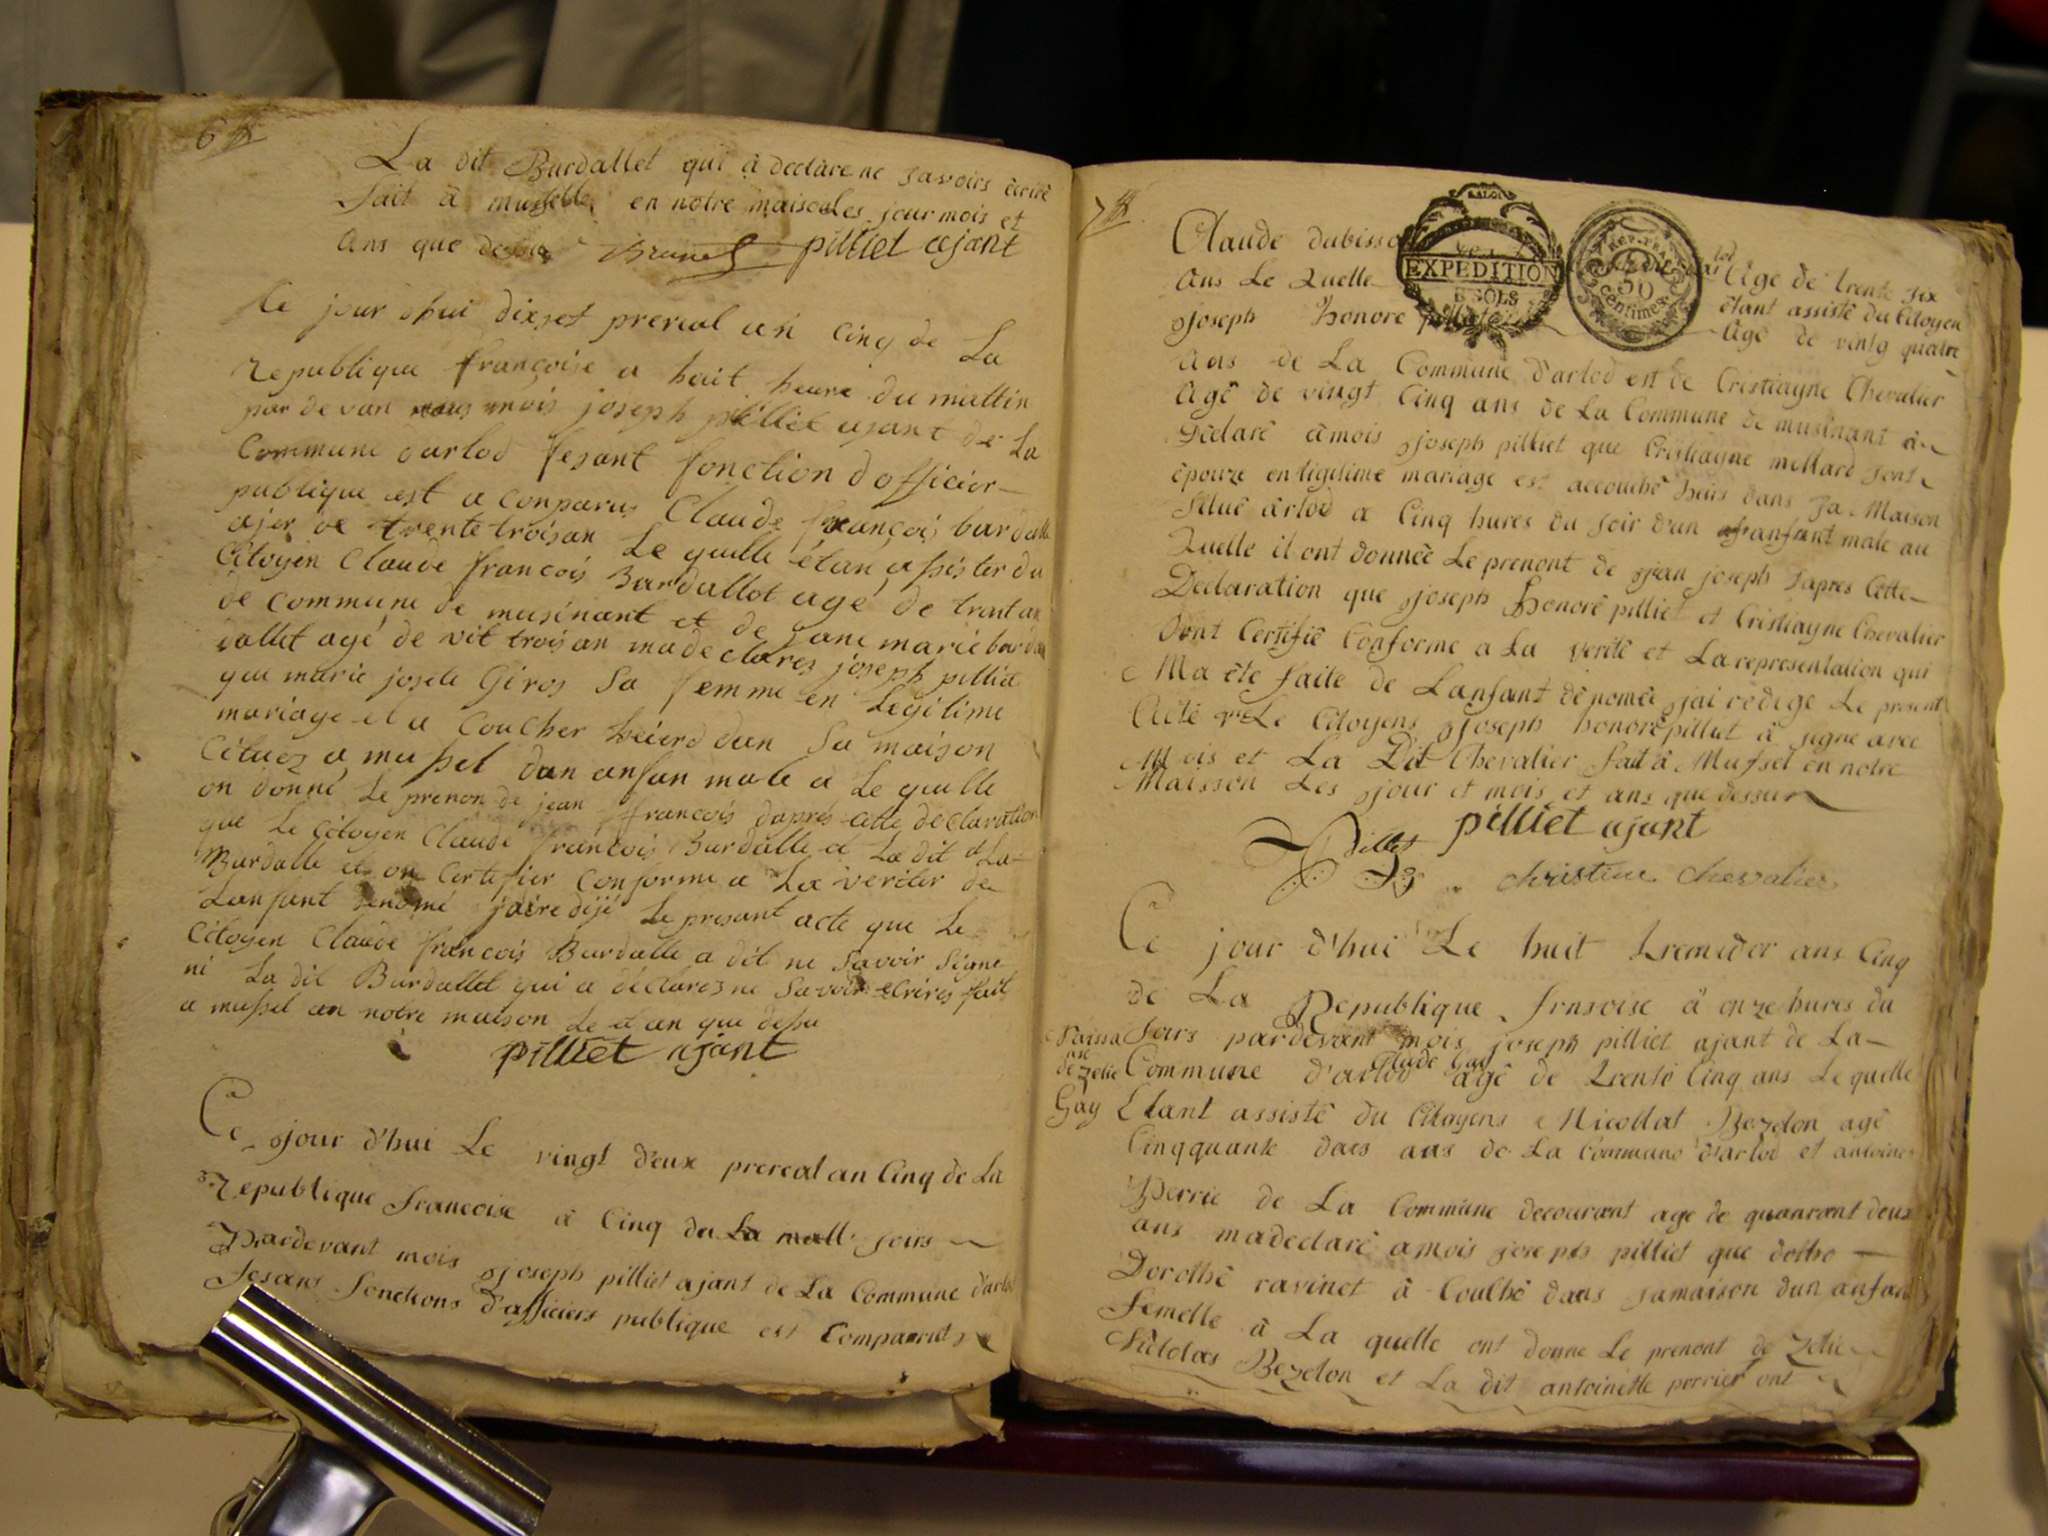 6
La dit Burdallet qui à declare ne savoirs ècrire
fait à musselle en notre maisoules jour mois et
ans que dessus Brunet pilliet ajant
Ce jour dhui dixset prereal an cinq de La
republique françoise a huit heure du mattin
par devan mois joseph pilliet ajant de La
Commune darlod fesant fonction dofficier
publique est a conparus Claude françois burdalle
ajer de trente troisan Le quille étan assister du
Citoyen Claude françois Burdallot agé de trant an
de commune de musinant et de jane marie bur
dallet agé de vit trois an made clarez joseph pilliet
que marie josete Giros Sa femme en Legitime
mariage el a Coucher heierd dan Sa maison
Cituez a mussel dun anfan male a Le quille
on donné Le prenon de jean françois daprés cette declaration
que Le Citoyen Claude françois Burdalle et La dit
Burdalle et on Certifier Conforme a La veriter de
Lanfant denomé jairedijé Le presant acte que Le
Citoyen Claude françois Burdalle a dit ne Savoir Signe
ni La dit Burdallet qui a déclarez ne Savoir ecrires fait
a mussel an notre maison Le et an que desu
pilliet ajant
Ce jour d'hui Le vingt d'eux prereal an Cinq de La
Republique francoise à Cinq du La matt soirs
Pardevant mois joseph pilliet ajant de La Commune d'arlod
fesans fonctions d'afficiers publique est Comparuts
7
Claude dubisso
EXPEDITION
REP. FRA.
50
centimes
Agé de trente six
ans Le quelle
étant assisté du Citoyen
joseph honore
Agé de vintg quatre
ans de La Commune d'arlod est de Cristiayne Chevalier
Agé de vingt Cinq ans de La Commune de musinant à
dèclaré àmois joseph pilliet que Cristiayne millard sont
èpouze enligitime mariage est accouché heis dans sa Maison
situé arlod a Cinq hures du soir d'un anfant male au
quelle il ont donnée Le prenont de jean joseph d'apres Cette
Declaration que joseph honoré pilliet et Cristiayne Chevalier
dont Certifié Conforme a La verité et La representation qui
Ma été faite de Lanfant dénomée jai rédigé Le present
Acte Le Citoyens joseph honoré pilliet à signe avec
Mois et La Dit Chevalier fait à Mussel en notre
Maisson Les jour et mois et ans que dessur
pilliet ajant
christine chevalier
Ce jour d'hui Le huit tremidor ans Cinq
de La Republique frnsoise à onze hures du
soirs pardevant mois joseph pilliet ajant de La
Naissa
nse
de zelie
Gay
Commune d'arlod Glade Gay agé de trente Cinq ans Le quelle
Etant assisté du Citoyens Nicollat Bezelon agé
Cinqquante daes ans de La Commune d'arlod et antoine
Perrie de La Commune decourant age de quanrant deux
ans madeclaré amois joseph pilliet que dotho
Dorothé ravinet à Couché dans samaison dun anfan
femelle à La quelle ont donne Le prenont de zelie
Nicolas Bezelon et La dit antoinette perrier ont